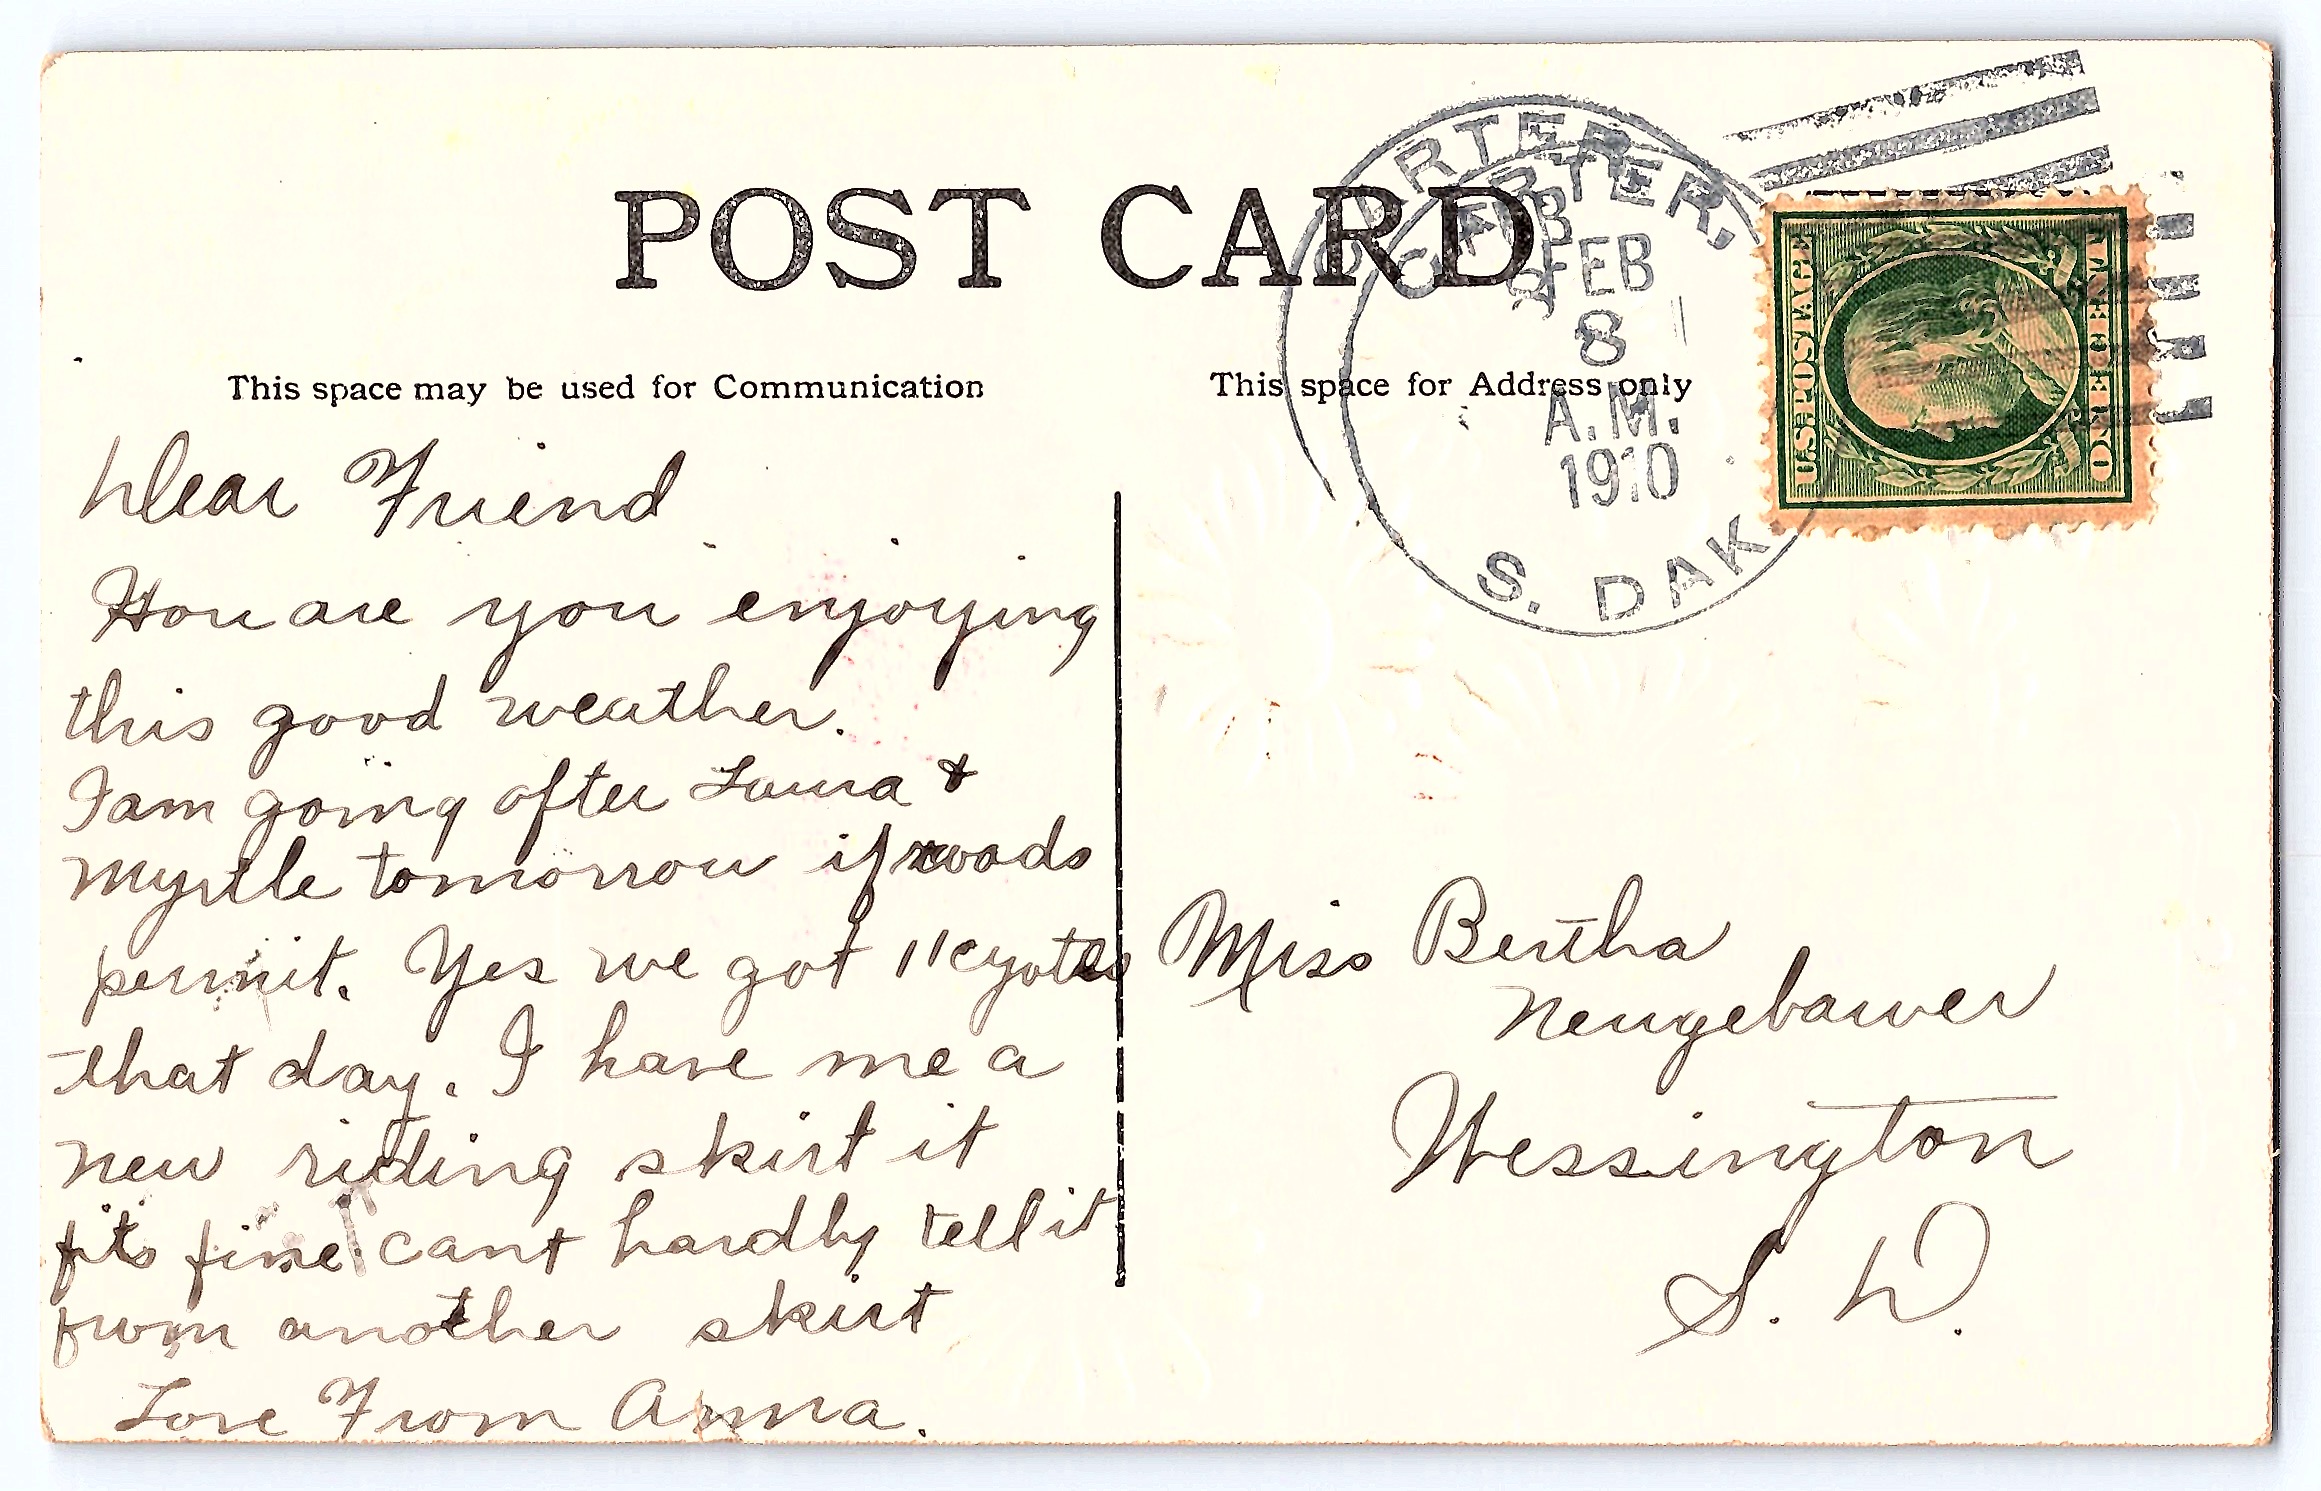 POST CARD
CARTER,
FEB
8
A.M.
1910
S. DAK
U.S. POSTAGE
ONE CENT
This space may be used for Communication
This space for Address only
Dear Friend
How are you enjoying
this good weather.
I am going after Laura &
Myrtle tomorrow if roads
permit. Yes we got 11 cyotes
that day. I have me a
new riding skirt it
fits fine cant hardly tell it
from another skirt
Love From Anna.
Miss Bertha
Neugebauer
Wessington
S. D.